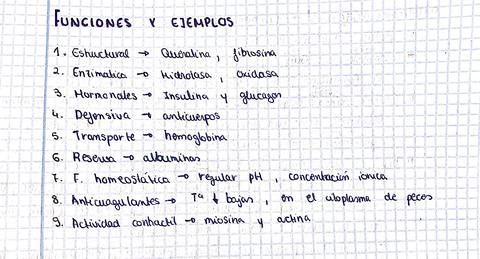 FUNCIONES Y EJEMPLOS
1. Estructural → Queratina, fibrosina
2. Enzimática → hidrolasa, oxidasa
3. Hormonales → Insulina y glucagon
4. Defensiva → anticuerpos
5. Transporte → hemoglobina
6. Reserva → albuminas
7. F. homeostática → regular pH, concentración iónica
8. Anticuagulantes → Tª ↓ bajas, en el citoplasma de peces
9. Actividad contractil → miosina y actina